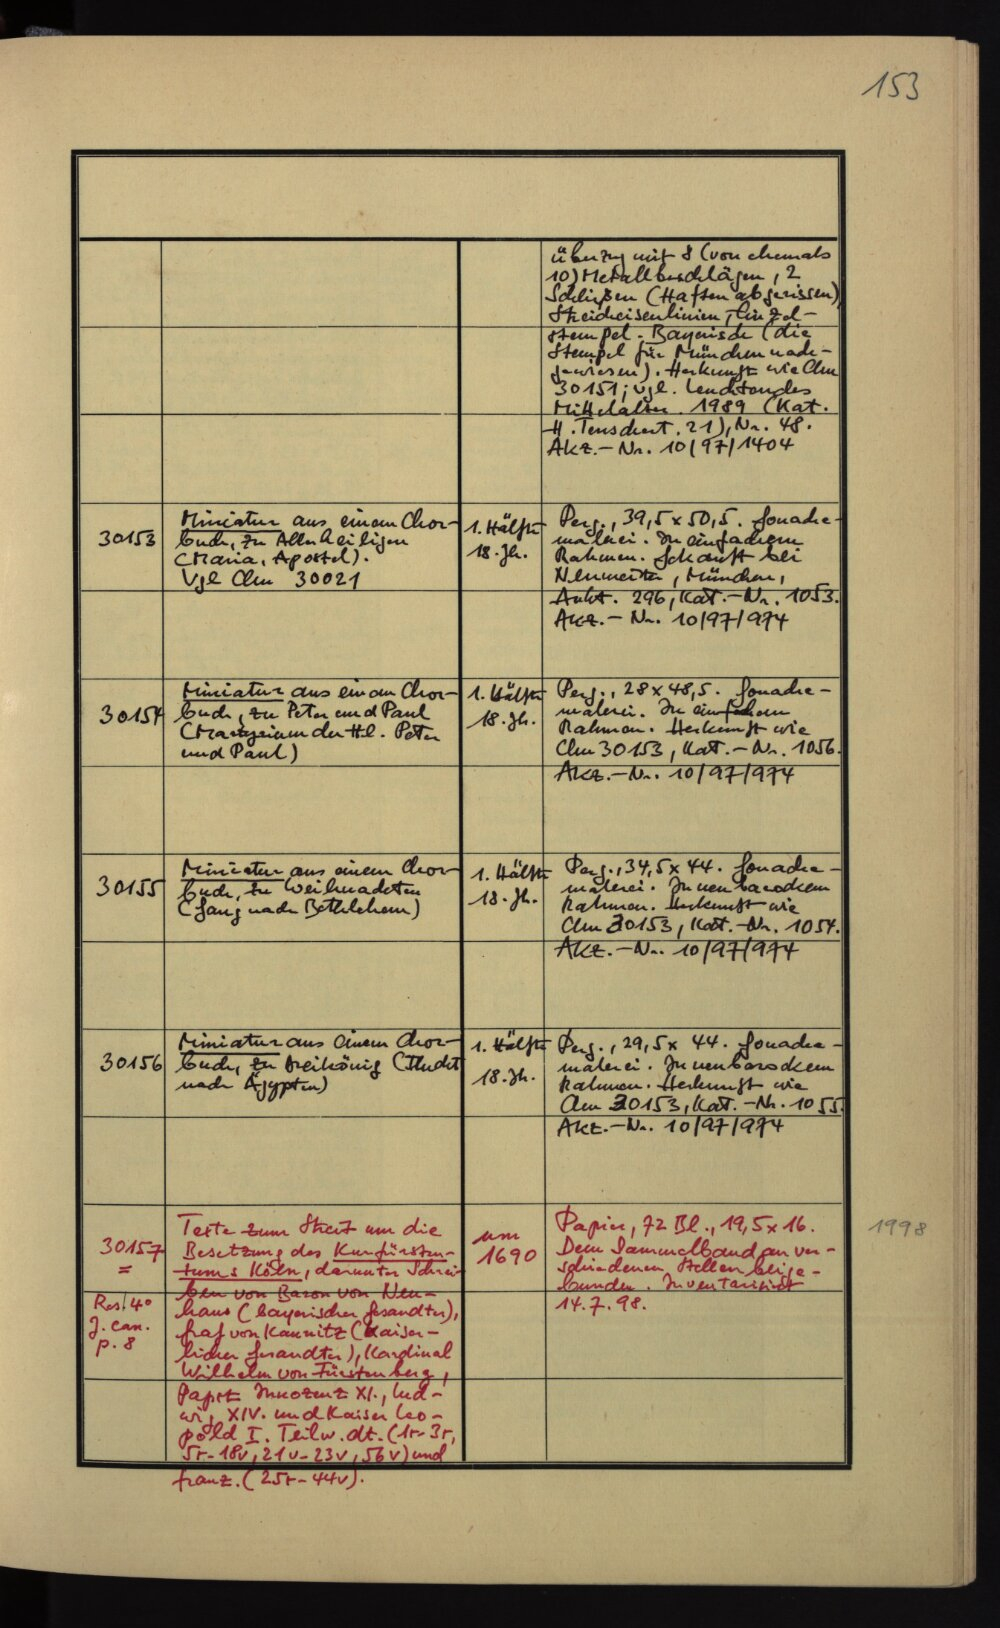 153
überzug mit 8 (von ehemals
10) Metallbeschlägen, 2
Schließen (Haften abgerissen)
Streicheisenlinien, Einzel-
stempel. Bayerisch (die
Stempel für München nach-
gewiesen). Herkunft wie Clm
30151; vgl. Leuchtendes
Mittelalter 1989 (Kat.
H. Tenschert, 21), Nr. 48.
Akz.-Nr. 10/97/1404
30153
Miniatur aus einem Chor-
buch, zu Allerheiligen
(Maria, Apostel).
Vgl Clm 30021
1. Hälfte
18. Jh.
Perg., 39,5 x 50,5. Gouache-
malerei. In einfachem
Rahmen. Gekauft bei
Neumeister, München,
Aukt. 296, Kat.-Nr. 1053.
Akz.-Nr. 10/97/974
30154
Miniatur aus einem Chor-
buch, zu Peter und Paul
(Martyrium der Hl. Peter
und Paul)
1. Hälfte
18. Jh.
Perg., 28 x 48,5. Gouache-
malerei. In einfachem
Rahmen. Herkunft wie
Clm 30153, Kat.-Nr. 1056.
Akz.-Nr. 10/97/974
30155
Miniatur aus einem Chor-
buch, zu Weihnachten
(Gang nach Bethlehem)
1. Hälfte
18. Jh.
Perg., 34,5 x 44. Gouache-
malerei. In neubarockem
Rahmen. Herkunft wie
Clm 30153, Kat.-Nr. 1054.
Akz.-Nr. 10/97/974
30156
Miniatur aus einem Chor-
buch, zu Dreikönig (Flucht
nach Ägypten)
1. Hälfte
18. Jh.
Perg., 29,5 x 44. Gouache-
malerei. In neubarockem
Rahmen. Herkunft wie
Clm 30153, Kat.-Nr. 1055.
Akz.-Nr. 10/97/974
30157
=
Res. 4°
J. can.
p. 8
Texte zum Streit um die
Besetzung des Kurfürsten-
tums Köln, darunter Schrei-
ben von Baron von Neu-
haus (bayerischer Gesandter),
Graf von Kaunitz (Kaiser-
licher Gesandter), Kardinal
Wilhelm von Fürstenberg,
Papst Innozenz XI., Lud-
wig XIV. und Kaiser Leo-
pold I. Teilw. dt. (1r-3r,
5r-18v, 21v-23v, 56v) und
franz. (25r-44v).
um
1690
Papier, 72 Bl., 19,5 x 16.
Dem Sammelband an ver-
schiedenen Stellen beige-
bunden. Inventarisiert
14.7.98.
1998